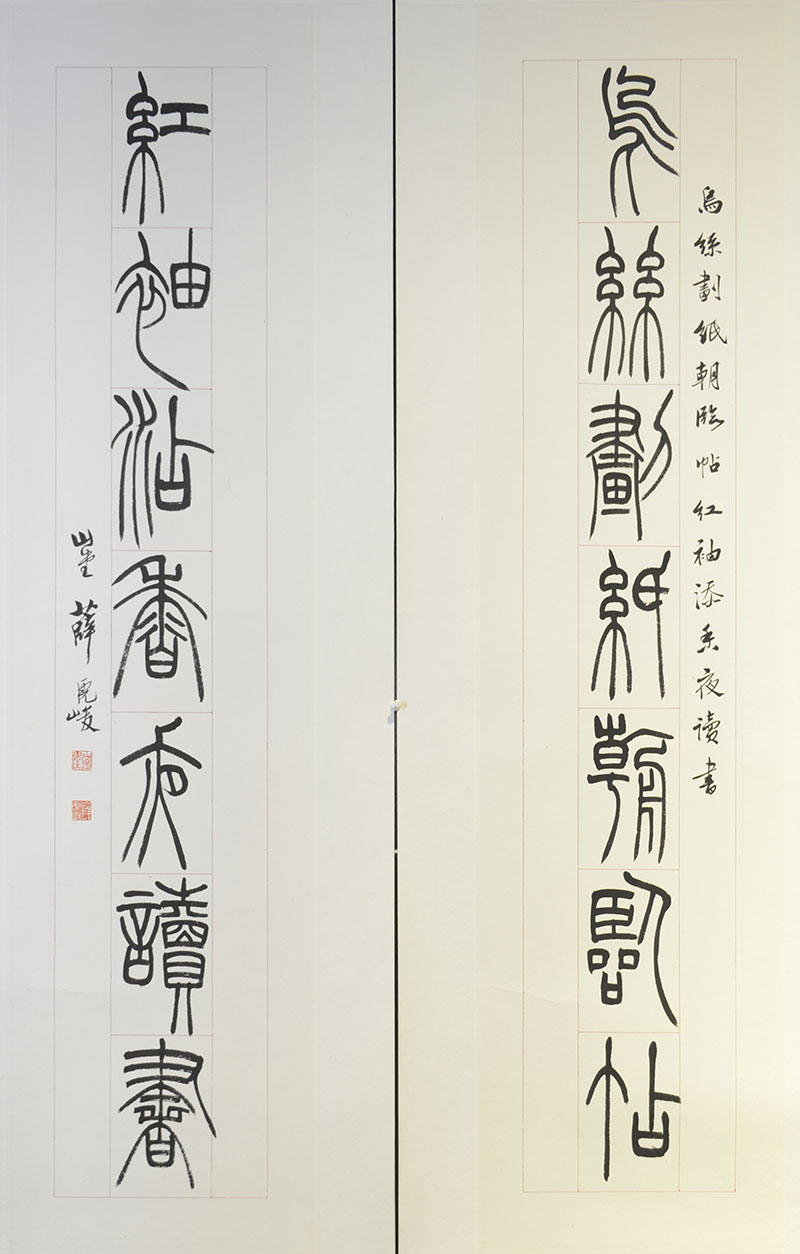 烏絲劃紙朝臨帖紅袖添香夜讀書
烏絲劃紙朝臨帖
紅袖沾香夜讀書
薛